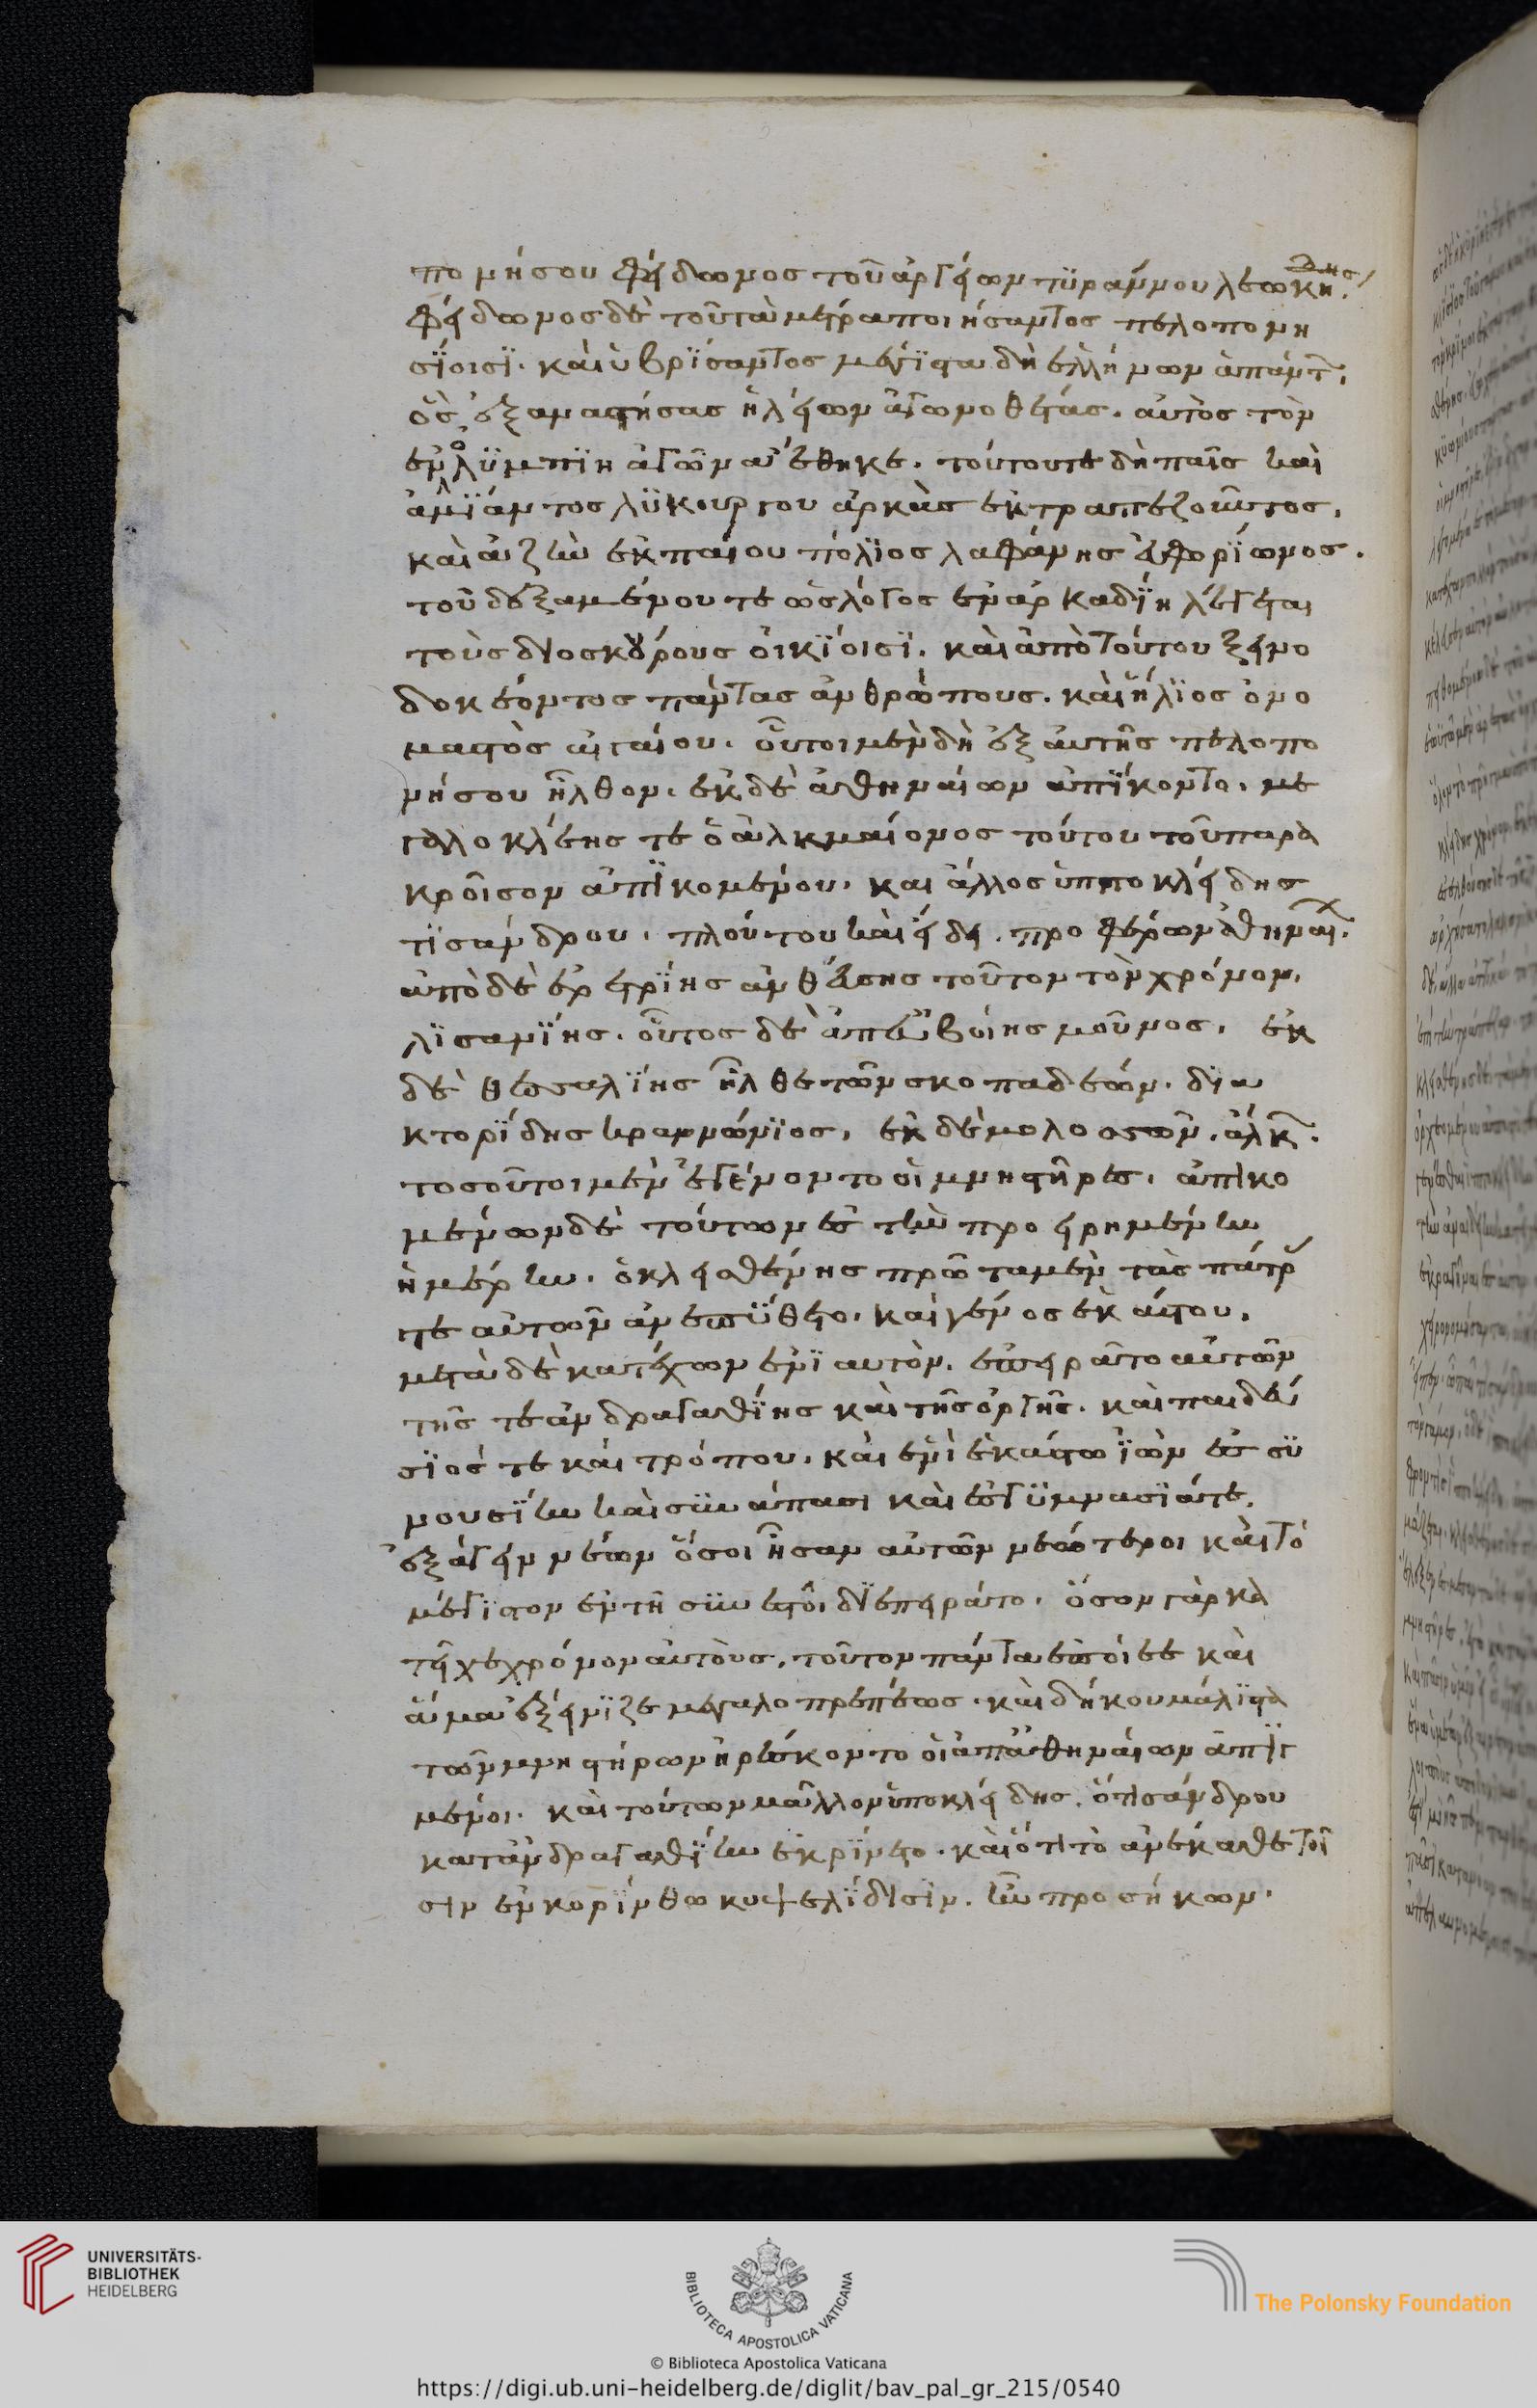 πονήσου φείδωνος τοῦ ἀργείων τυράννου λεωκήδης·
φείδωνος δὲ τοῦ τὰ μέτρα ποιήσαντος πελοπονη
σίοισι. καὶ ὑβρίσαντος μέγιστα δὴ ἑλλήνων ἁπάντ·
ὃς ἐξαναστήσας ἠλείων ἀγωνοθέτας. αὐτὸς τὸν
ἐν ὀλυμπίη ἀγῶνα ἔθηκε. τούτου τε δὴ παῖς καὶ
ἀμίαντος λυκούργου ἀρκὰς ἐκ τραπεζοῦντος.
καὶ ἀζὴν ἐκ παίου πόλιος λαφάνης εὐφορίωνος.
τοῦ δεξαμένου τε ὡς λόγος ἐν ἀρκαδίη λέγεται
τοὺς διοσκούρους οἰκίοισι. καὶ ἀπὸ τούτου ξεινο
δοκέοντος πάντας ἀνθρώπους. καὶ ἠλῖος ὀνο
μαστὸς ἀγαίου. οὗτοι μὲν δὴ ἐξ αὐτῆς πελοπο
νήσου ἦλθον. ἐκ δὲ ἀθηναίων ἀπίκοντο. με
γαλοκλέης τε ὁ ἀλκμαίονος τούτου τοῦ παρὰ
κροῖσον ἀπικομένου. καὶ ἄλλος ἱπποκλείδης
τισάνδρου. πλούτου καὶ εἴδει. προφέρων ἀθηναί·
ἀπὸ δὲ ἐρετρίης ἀνθεύσης τοῦτον τὸν χρόνον.
λισανίης. οὗτος δὲ ἀπ' εὐβοίης μοῦνος. ἐκ
δὲ θεσσαλίης ἦλθε τῶν σκοπαδέων. δια
κτορίδης κραννώνιος. ἐκ δὲ μολοσσῶν. ἄλκ·
τοσοῦτοι μὲν ἐγένοντο οἱ μνηστῆρες. ἀπικο
μένων δὲ τούτων ἐς τὴν προειρημένην
ἡμέρην. ὁ κλεισθένης πρῶτα μὲν τὰς πάτρ
τε αὐτῶν ἀνεπύθετο. καὶ γένος ἑκάστου.
μετὰ δὲ κατέχων ἐνιαυτὸν. ἐπειρᾶτο αὐτῶν
τῆς τε ἀνδραγαθίης καὶ τῆς ὀργῆς. καὶ παιδεύ
σιός τε καὶ τρόπου. καὶ ἑνὶ ἑκάστω ἰὼν ἐς συ
νουσίην καὶ συνάπασι καὶ ἐς γυμνασιά τε.
ἐξάγειν νέων ὅσοι ἦσαν αὐτῶν νεώτεροι καὶ τό
μέγιστον ἐν τῆ συνεστοῖ διεπειρᾶτο. ὅσον γὰρ κα
τεῖχε χρόνον αὐτοὺς. τοῦτον πάντα ἐποίεε καὶ
ἅμα ἐξείνιζε μεγαλοπρεπέως. καὶ δή κου μάλιστα
τῶν μνηστήρων ἠρέσκοντο οἱ ἀπ' ἀθηναίων ἀπιγ
μένοι. καὶ τούτων μᾶλλον ἱποκλείδης. ὁ τισάνδρου
κατ' ἀνδραγαθίην ἐκρίνετο. καὶ ὅτι τὸ ἀνέκαθε τοῖ
σιν ἐν κορίνθω κυψελίδισιν. ἦν προσήκων.
UNIVERSITÄTS-
BIBLIOTHEK
HEIDELBERG
BIBLIOTECA APOSTOLICA VATICANA
The Polonsky Foundation
© Biblioteca Apostolica Vaticana
https://digi.ub.uni-heidelberg.de/diglit/bav_pal_gr_215/0540